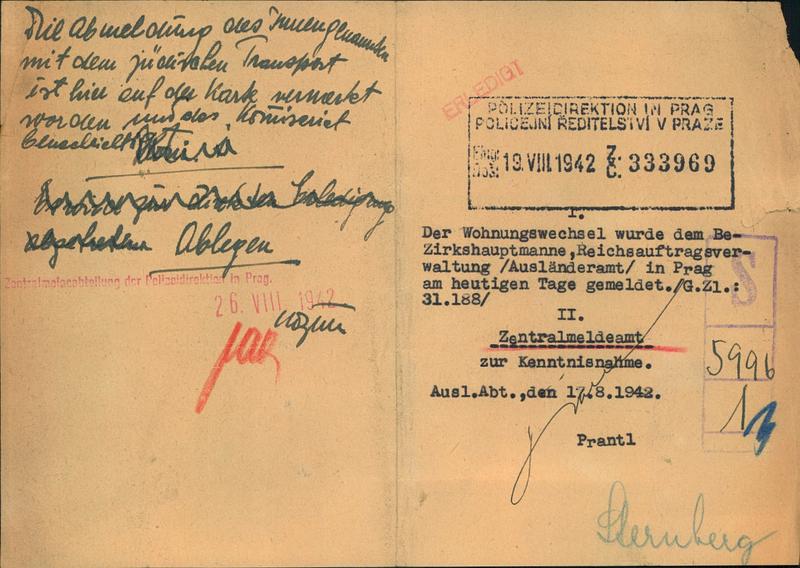 Die Abmeldung des Innengenannten
mit dem jüdischen Transport
ist hier auf der Karte vermerkt
worden und das Komisariat
benachrichtigt.
abgetreten Ablegen
Zentralmeldeabteilung der Polizeidirektion in Prag.
26. VIII. 1942
ERLEDIGT
POLIZEIDIREKTION IN PRAG
POLICEJNÍ ŘEDITELSTVÍ V PRAZE
Eing.
Doš. 19.VIII.1942 Z.
Č. 333969
I.
Der Wohnungswechsel wurde dem Be-
zirkshauptmanne,Reichsauftragsver-
waltung /Ausländeramt/ in Prag
am heutigen Tage gemeldet./G.Zl.:
31.188/
II.
Zentralmeldeamt
zur Kenntnisnahme.
Ausl.Abt.,den 17.8.1942.
Prantl
S
5996
1
Sternberg